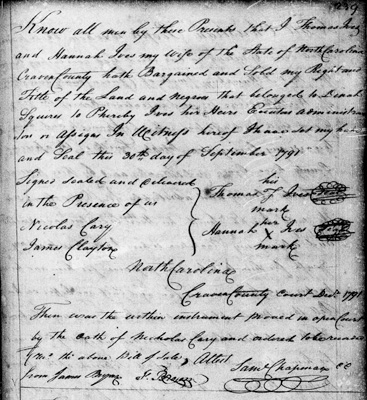 Know all men by these Presents that I Thomas Ives
and Hannah Ives my wife of the State of North Carolina
Craven County hath Bargained and Sold my Right and
Title of the Land and Negroes that belonged to Dinah
Squires to Phereby Ives her Heirs Executors administra
tors or Assigns In Witness hereof I have set my hand
and Seal this 30th day of September 1791
Signed sealed and delivered
in the Presence of us
Nicolas Cary
James Clayton
his
Thomas Ives
mark
her
Hannah X Ives
mark
North Carolina
Craven County Court Decr. 1791
Then was the within instrument proved in open Court
by the oath of Nicholas Cary and ordered to be
the above Bill of Sale, Attest
from James Saml. Chapman CC